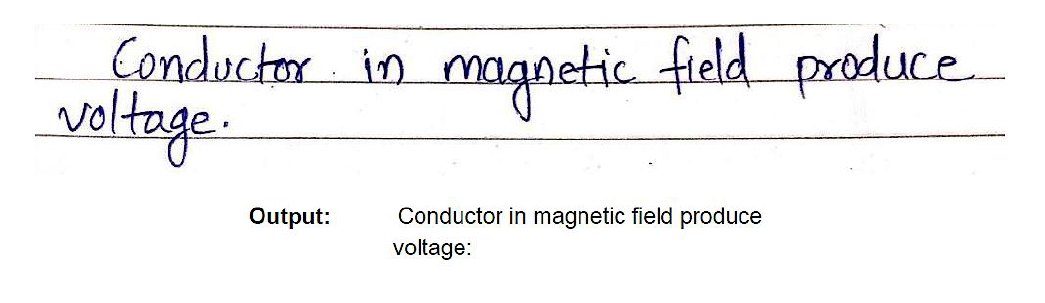 Conductor in magnetic field produce
voltage.
Output: Conductor in magnetic field produce
voltage: